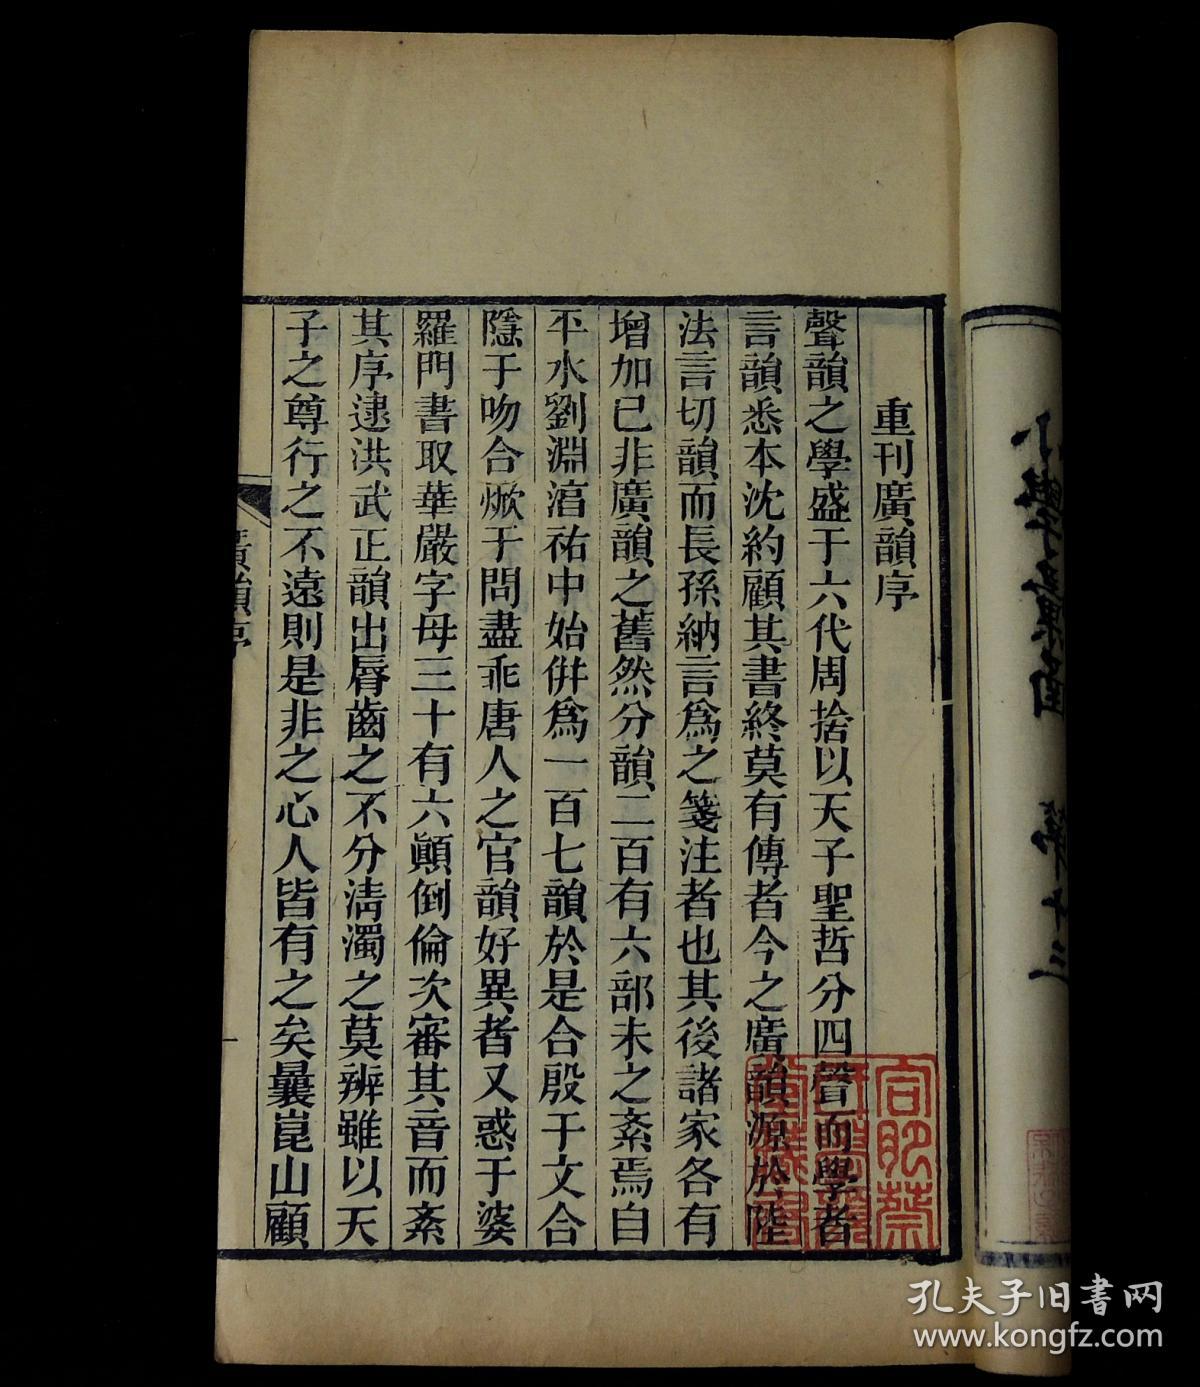 重刊廣韻序
聲韻之學盛于六代周捨以天子聖哲分四聲而學者
言韻悉本沈約顧其書終莫有傳者今之廣韻源於陸
法言切韻而長孫納言爲之箋注者也其後諸家各有
增加已非廣韻之舊然分韻二百有六部未之紊焉自
平水劉淵淳祐中始併爲一百七韻於是合殷于文合
隱于吻合焮于問盡乖唐人之官韻好異者又惑于婆
羅門書取華嚴字母三十有六顚倒倫次審其音而紊
其序逮洪武正韻出脣齒之不分淸濁之莫辨雖以天
子之尊行之不遠則是非之心人皆有之矣曩崑山顧
廣韻序
小學彙函 第十三
孔夫子旧书网
www.kongfz.com